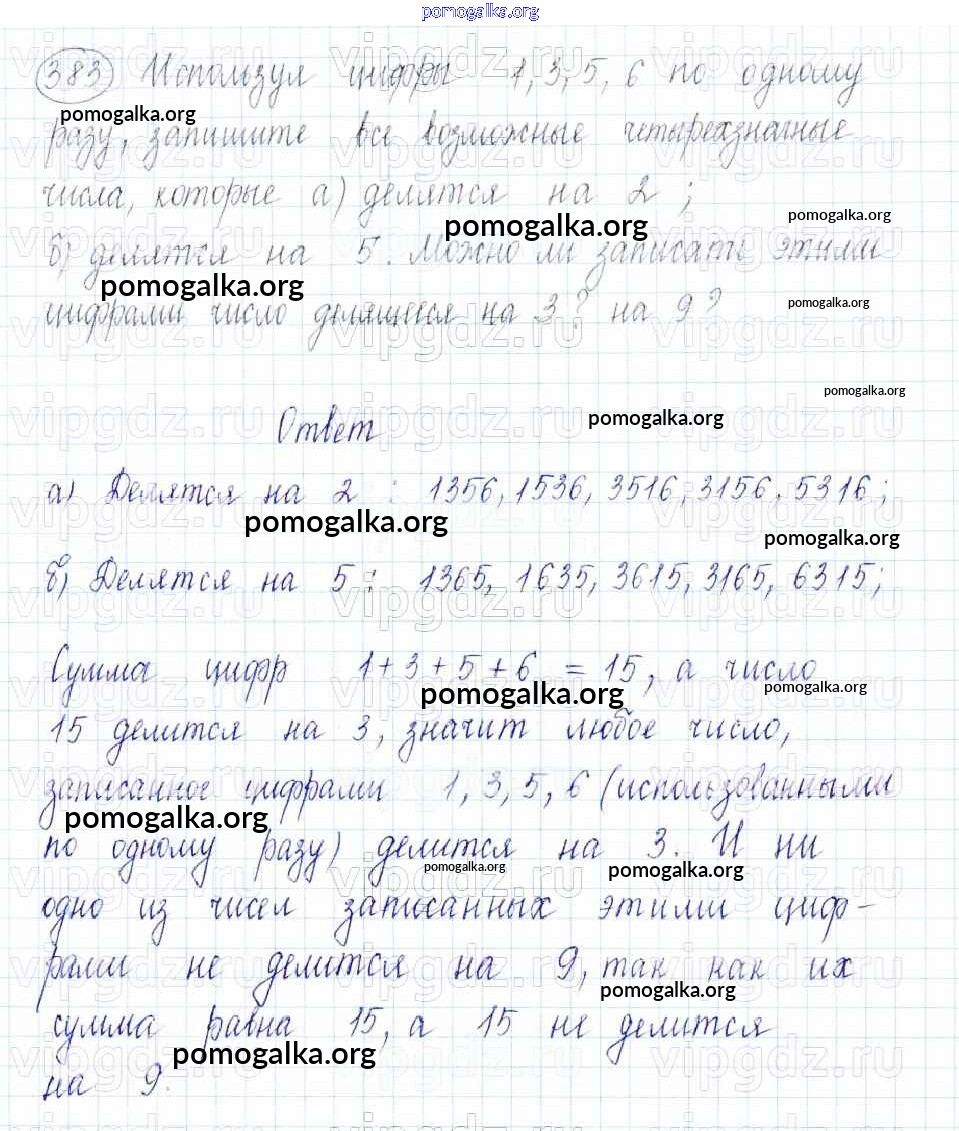 pomogalka.org
383 Используя цифры 1, 3, 5, 6 по одному
pomogalka.org
разу, запишите все возможные четырехзначные
числа, которые а) делятся на 2;
pomogalka.org
pomogalka.org
б) делятся на 5. Можно ли записать этими
pomogalka.org
цифрами число делящееся на 3? на 9?
pomogalka.org
pomogalka.org
Ответ
pomogalka.org
а) Делятся на 2 : 1356, 1536, 3516, 3156, 5316;
pomogalka.org
pomogalka.org
б) Делятся на 5 : 1365, 1635, 3615, 3165, 6315;
Сумма цифр 1+3+5+6 = 15, а число
pomogalka.org
pomogalka.org
15 делится на 3, значит любое число,
записанное цифрами 1, 3, 5, 6 (использованными
pomogalka.org
по одному разу) делится на 3. И ни
pomogalka.org
pomogalka.org
одно из чисел записанных этими циф-
рами не делится на 9, так как их
pomogalka.org
сумма равна 15, а 15 не делится
pomogalka.org
на 9.
vipgdz.ru